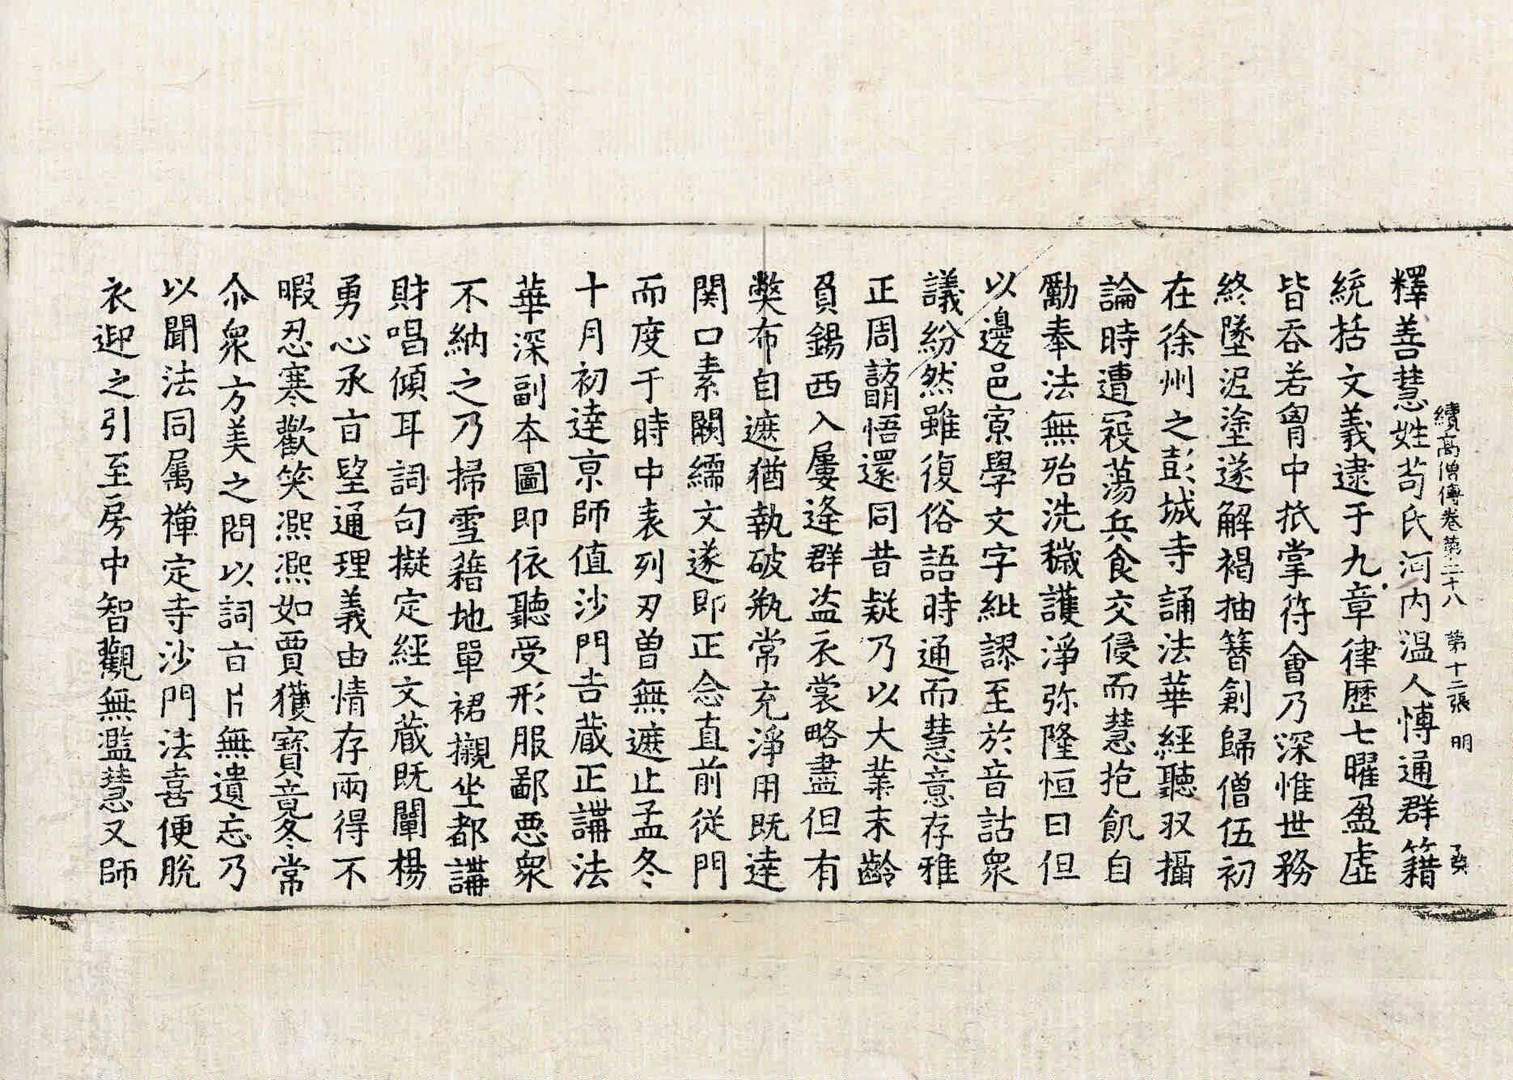 續高僧傳卷第二十八　第十二張　明
釋善慧姓苟氏河內溫人愽通群籍
統括文義逮于九章律歷七曜盈虛
皆吞若胷中扺掌符會乃深惟世務
終墜泥塗遂解褐抽簪創歸僧伍初
在徐州之彭城寺誦法華經聽収攝
論時遭寇蕩兵食交侵而慧抱飢自
勵奉法無殆洗穢護淨弥隆恒日但
以邊邑寮學文字紕謬至於音詁衆
議紛然雖復俗語時通而慧意存雅
正周訪明悟還同昔疑乃以大業末齡
負錫西入屢逢群盜衣裳略盡但有
獘布自遮猶執破瓶常充淨用既達
関口素闕繻文遂即正念直前従門
而度于時中表列刃曽無遮止孟冬
十月初達京師值沙門吉藏正講法
華深副本圖即依聽受形服鄙惡衆
不納之乃掃雪藉地單裙襯坐都講
財唱傾耳詞句擬定經文藏既闡楊
勇心承旨望通理義由情存兩得不
暇忍寒歡笑凞凞如賈獲寶竟冬常
尒衆方美之問以詞旨片無遺忘乃
以聞法同属禅定寺沙門法喜便脫
衣迎之引至房中智觀無濫慧又師